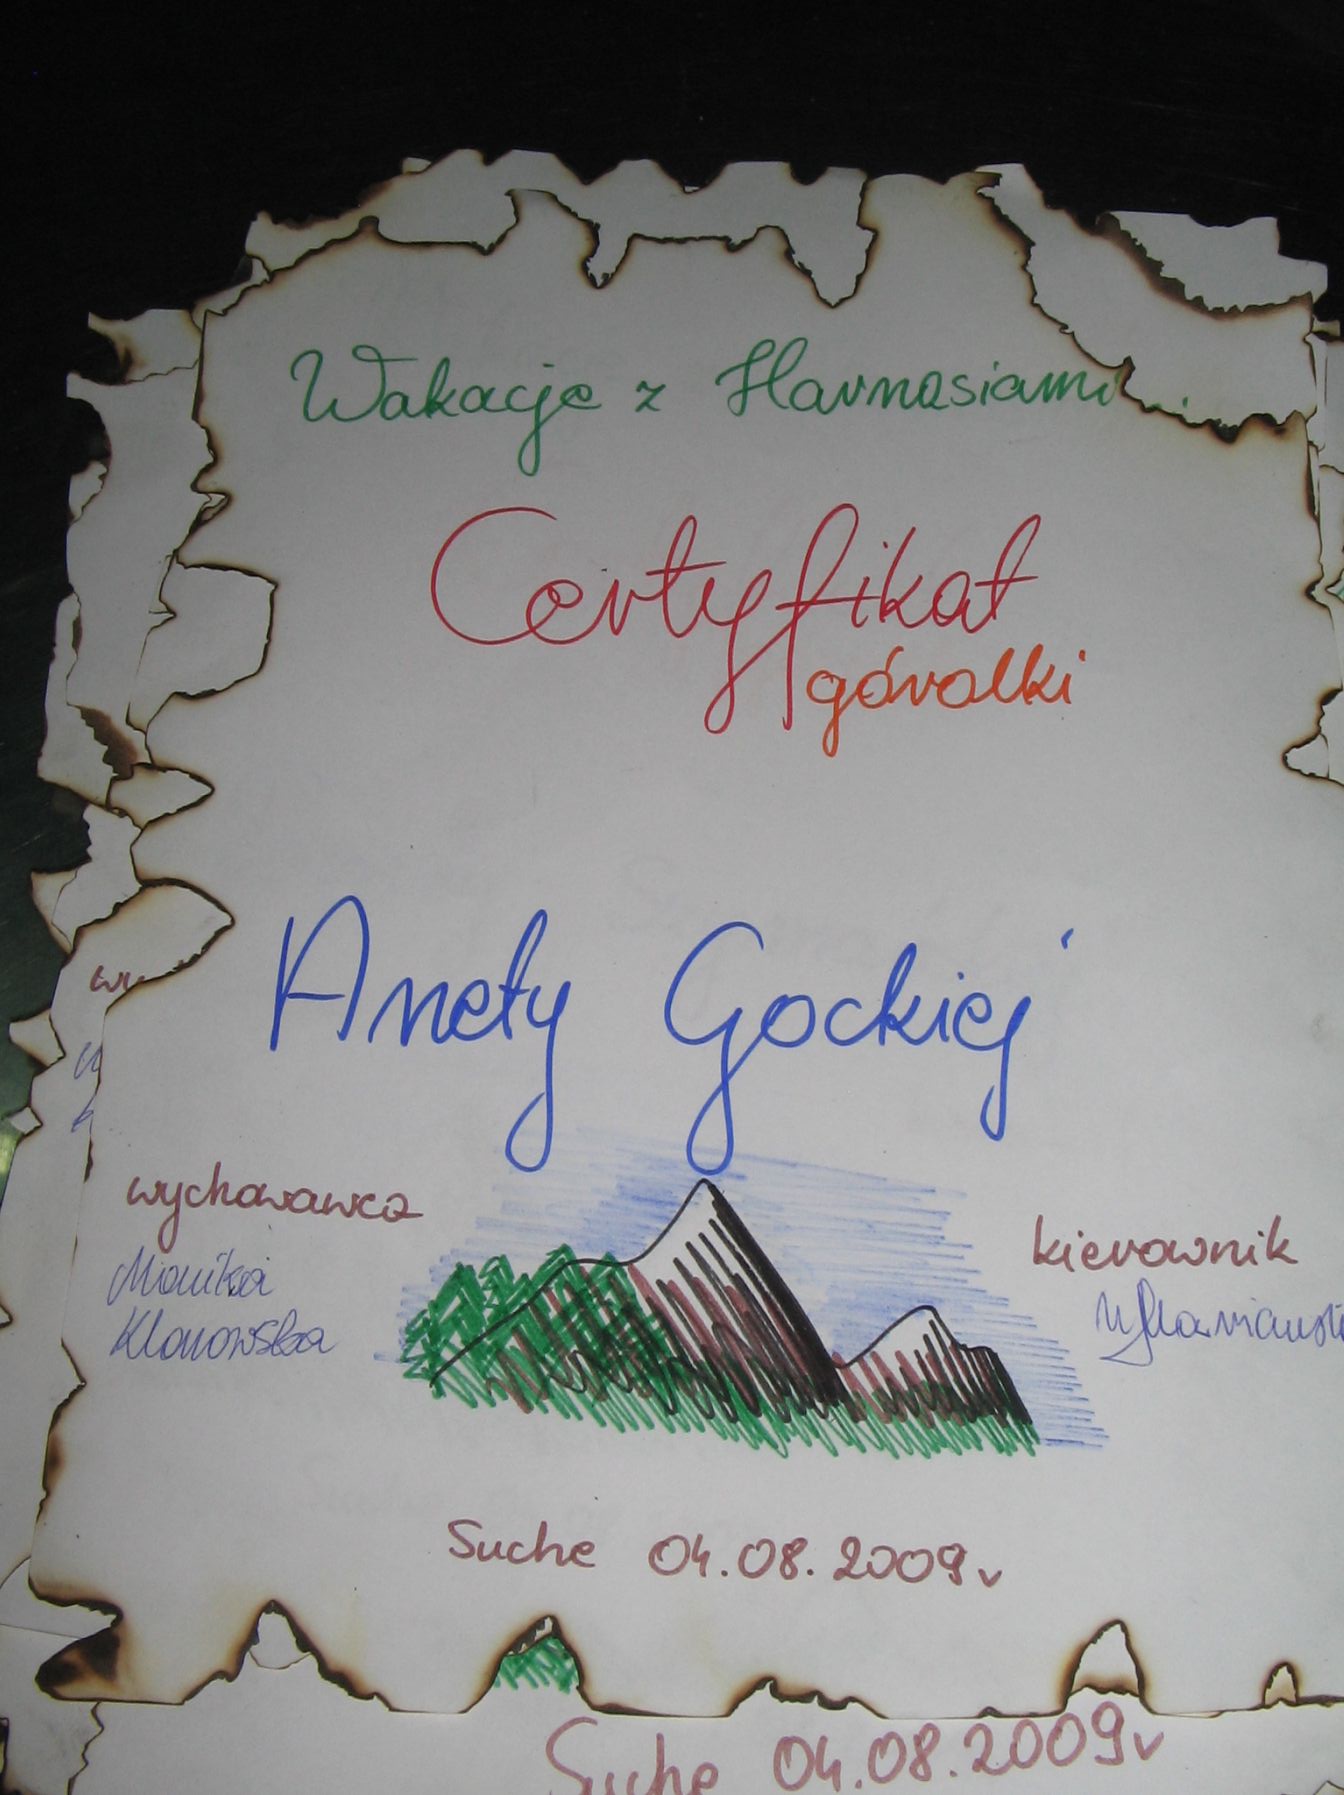 Wakacje z Harnasiami
Certyfikat
góralki
Anety Gockiej
wychowawca
Monika
Klonowska
kierownik
Suche 04.08.2009r
Suche 04.08.2009r